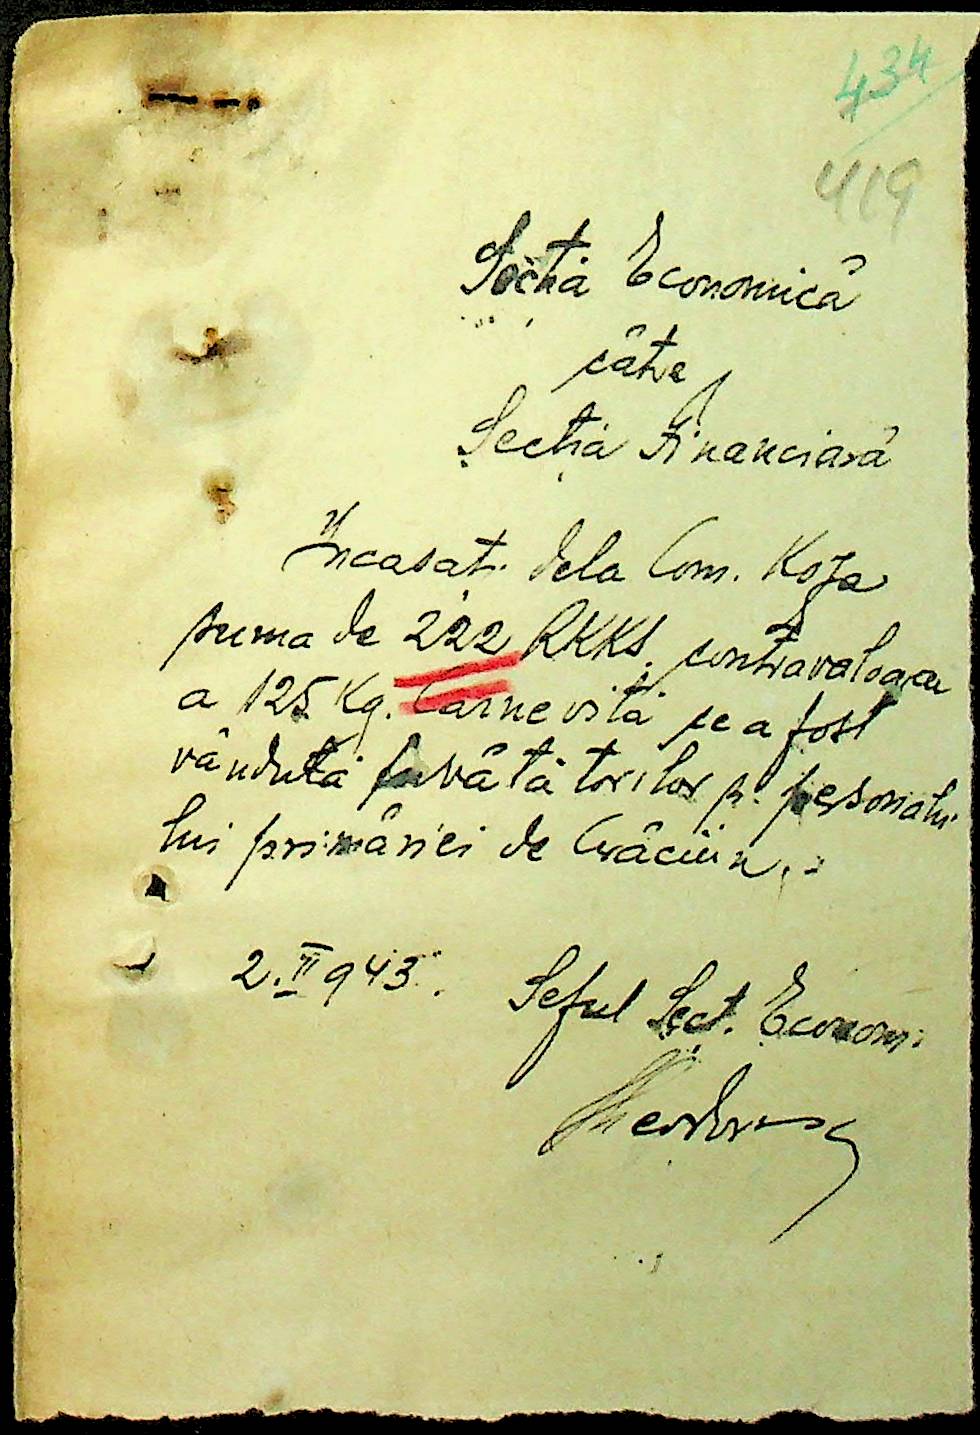 434
419
Secția Economică
către
Secția Financiară
Încasat. dela Com. Koja
suma de 222 RKKS. contravaloarea
a 125 Kg. Carne vită ce a fost
vândută învățătorilor p. personalu
lui primăriei de Crăciun.
2.II 943.
Șeful Secț. Econom.